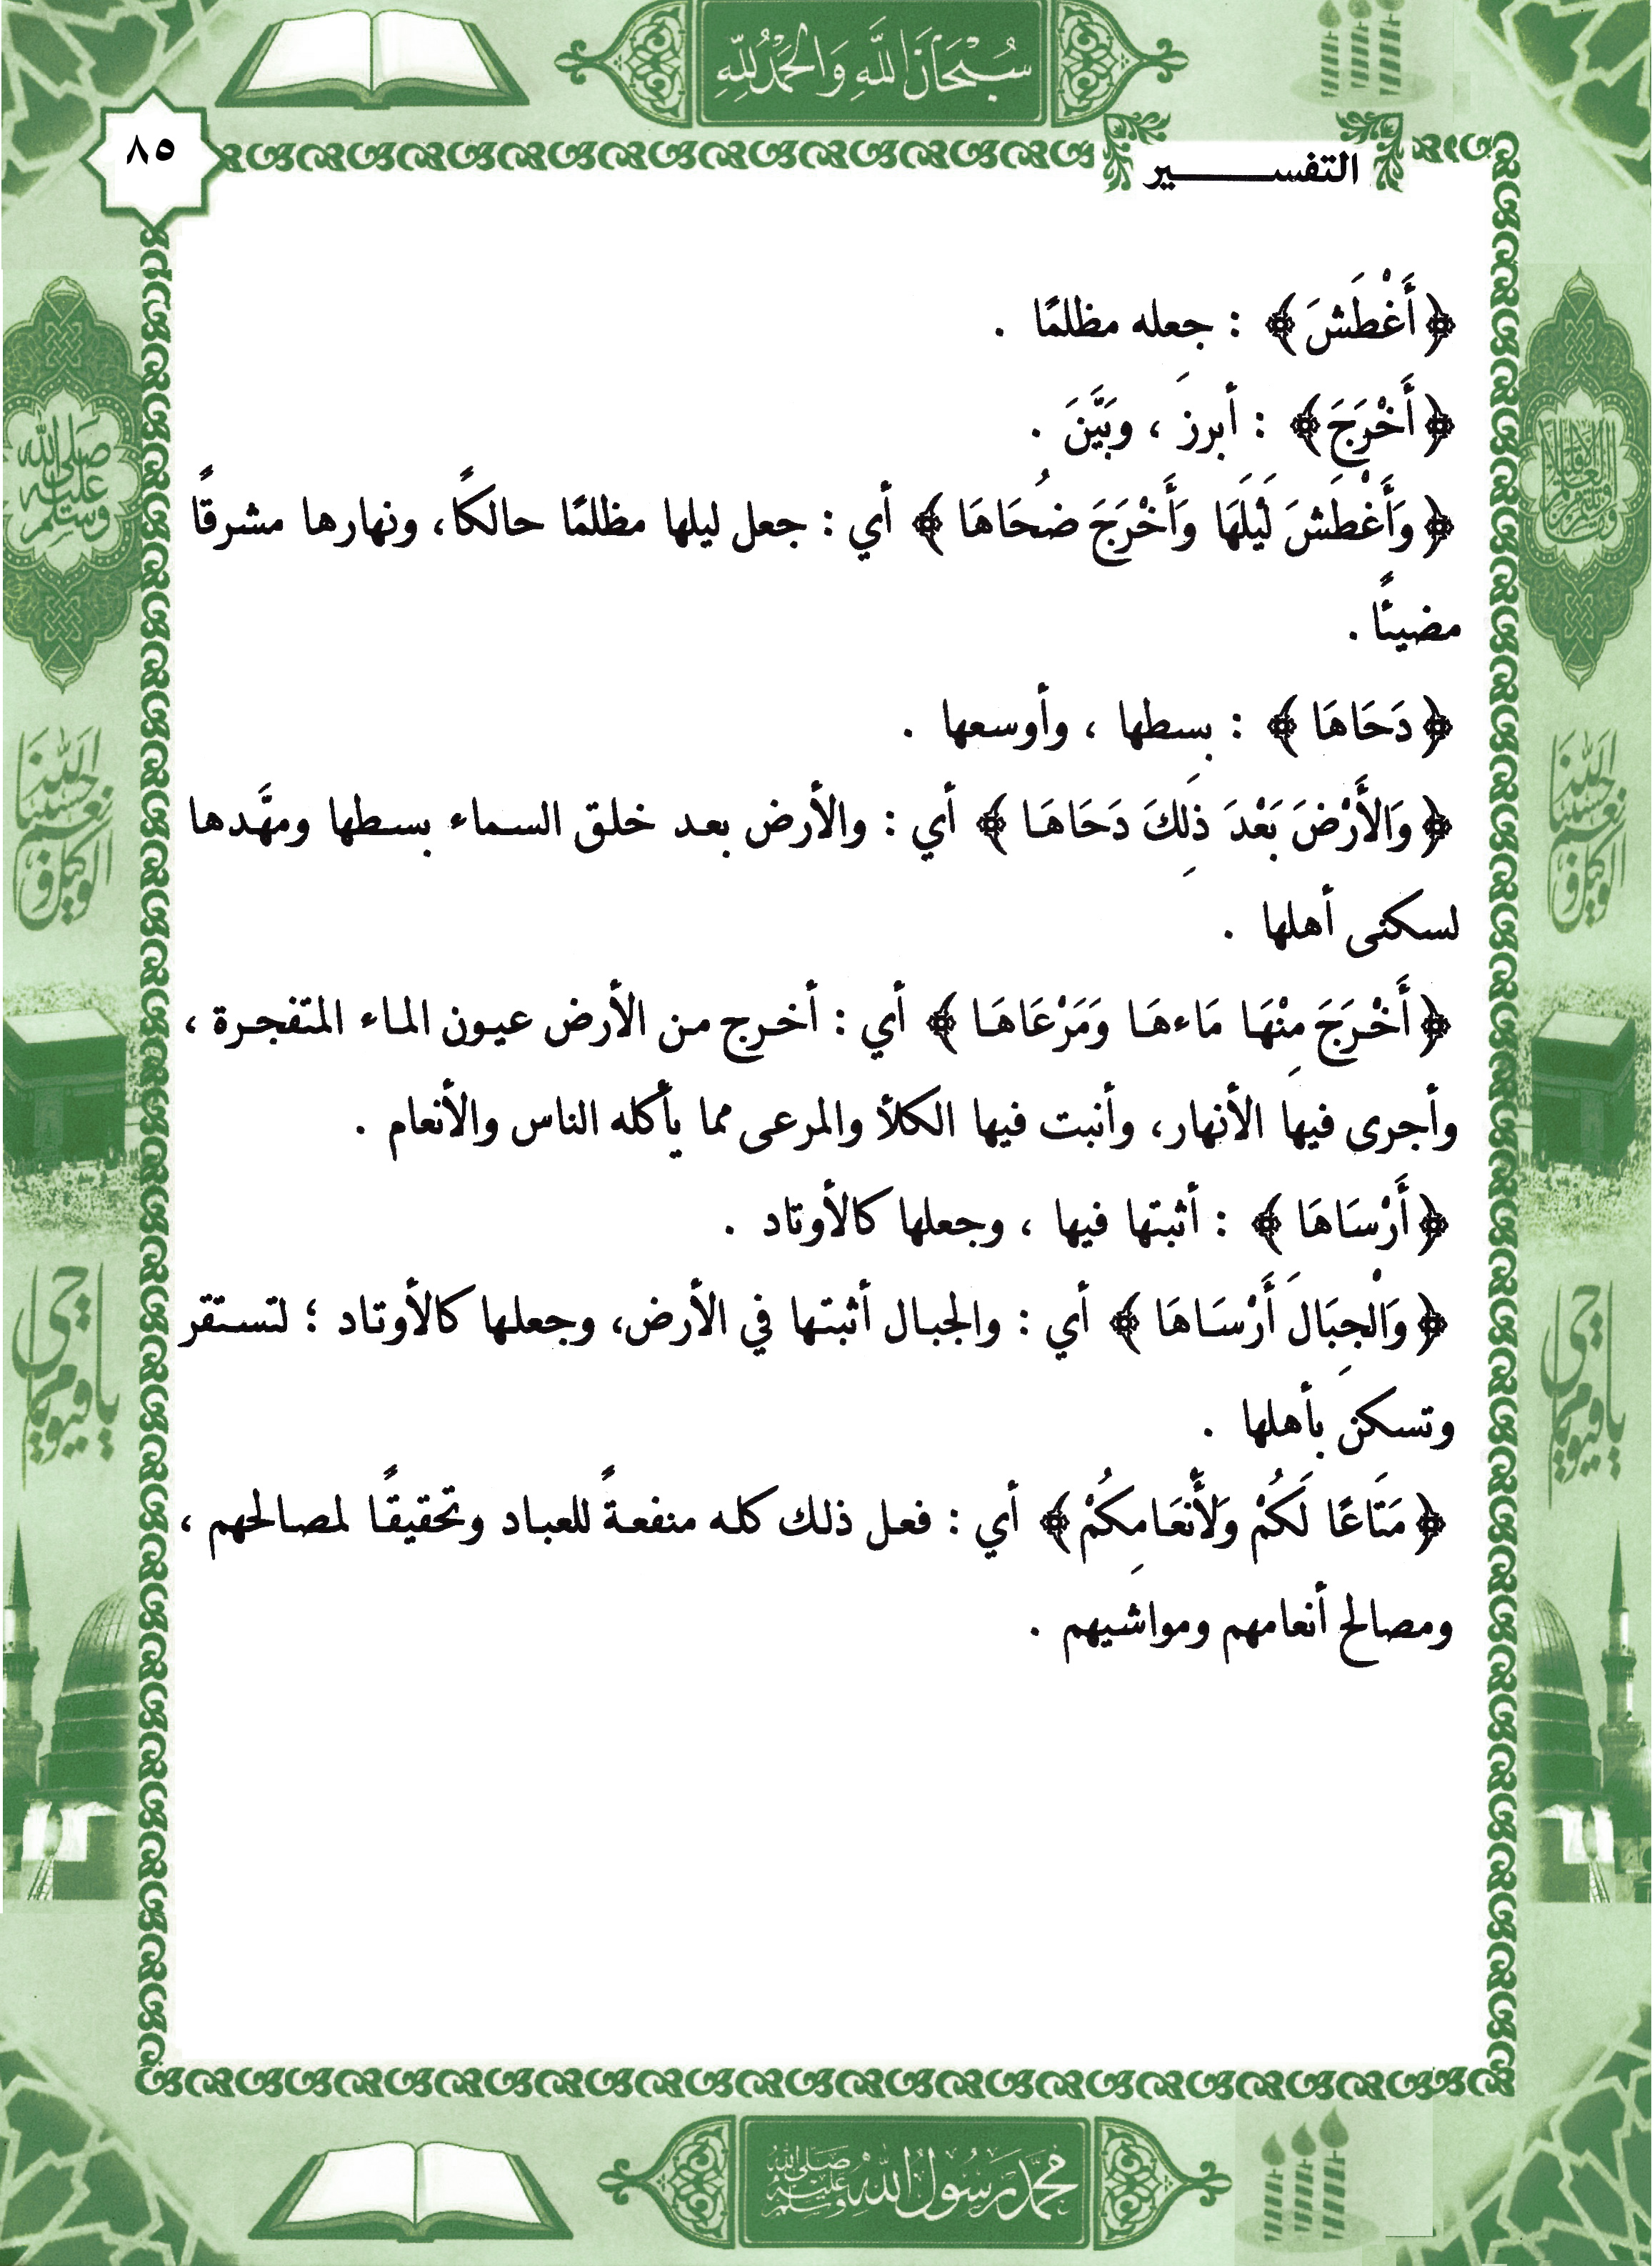 سُبْحَانَ اللَّهِ وَالْحَمْدُ لِلَّهِ
٨٥
التفسير
﴿أَغْطَشَ﴾ : جعله مظلمًا .
﴿أَخْرَجَ﴾ : أبرزَ ، وبَيَّنَ .
﴿وَأَغْطَشَ لَيْلَهَا وَأَخْرَجَ ضُحَاهَا﴾ أي : جعل ليلها مظلمًا حالكًا، ونهارها مشرقًا
مضيئًا .
﴿دَحَاهَا﴾ : بسطها ، وأوسعها .
﴿وَالأَرْضَ بَعْدَ ذَلِكَ دَحَاهَا﴾ أي : والأرض بعد خلق السماء بسطها ومهَّدها
لسكنى أهلها .
﴿أَخْرَجَ مِنْهَا مَاءهَا وَمَرْعَاهَا﴾ أي : أخرج من الأرض عيون الماء المتفجرة ،
وأجرى فيها الأنهار، وأنبت فيها الكلأ والمرعى مما يأكله الناس والأنعام .
﴿أَرْسَاهَا﴾ : أثبتها فيها ، وجعلها كالأوتاد .
﴿وَالْجِبَالَ أَرْسَاهَا﴾ أي : والجبال أثبتها في الأرض، وجعلها كالأوتاد ؛ لتستقر
وتسكن بأهلها .
﴿مَتَاعًا لَكُمْ وَلأَنْعَامِكُمْ﴾ أي : فعل ذلك كله منفعةً للعباد وتحقيقًا لمصالحهم ،
ومصالح أنعامهم ومواشيهم .
صلى الله عليه وسلم
حسبنا الله ونعم الوكيل
حسبنا الله ونعم الوكيل
يا حي يا قيوم
يا حي يا قيوم
محمد رسول الله صلى الله عليه وسلم